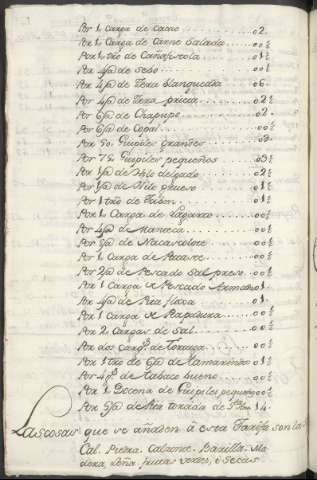 Por 1 Carga de Cacao 02.
Por 1 Carga de Carne Salada 00½
Por 1 tro de Cañafistola 01½
Por 4 @ de sebo 00½
Por 4 @ de Texa blanquedia 06.
Por 4 @ de Texa prieta 02½
Por 6 @ de Chapupo 02.
Por 6 @ de Copal 00½
Por 50. Guipiles grandes 03
Por 75. Guipiles pequeños 03½
Por 1 @ de Hilo delgado 02½
Por 1 @ de Hilo grueso 01½
Por 1 tro de Jabon 01½
Por 1 Carga de 00½
Por 4 @ de Manteca 00½
Por 8 @ de Nacascolote 00½
Por 1 Carga de Petates 00½
Por 2 @ de Pescado Sal preso 00½
Por 1 Carga de Pescado 01
Por 4 @ de Pita floxa 01.
Por 1 Carga de Rapadura 00½
Por 2. Cargas de Sal 00½
Por dos carg.s de Tortuga 00½
Por 1 tro de 6 @ de tamarindo 01½
Por 4 @ de tabaco bueno 00½
Por 1 Docena de Guipiles pequeños 00½
Por 5 @ de Pita torzada de 14.
Las cosas que se añaden á esta Tarifa son la
Cal. Piedra. Calzone. Baxilla. Ma-
dera, Leña, frutas verdes, ó secas